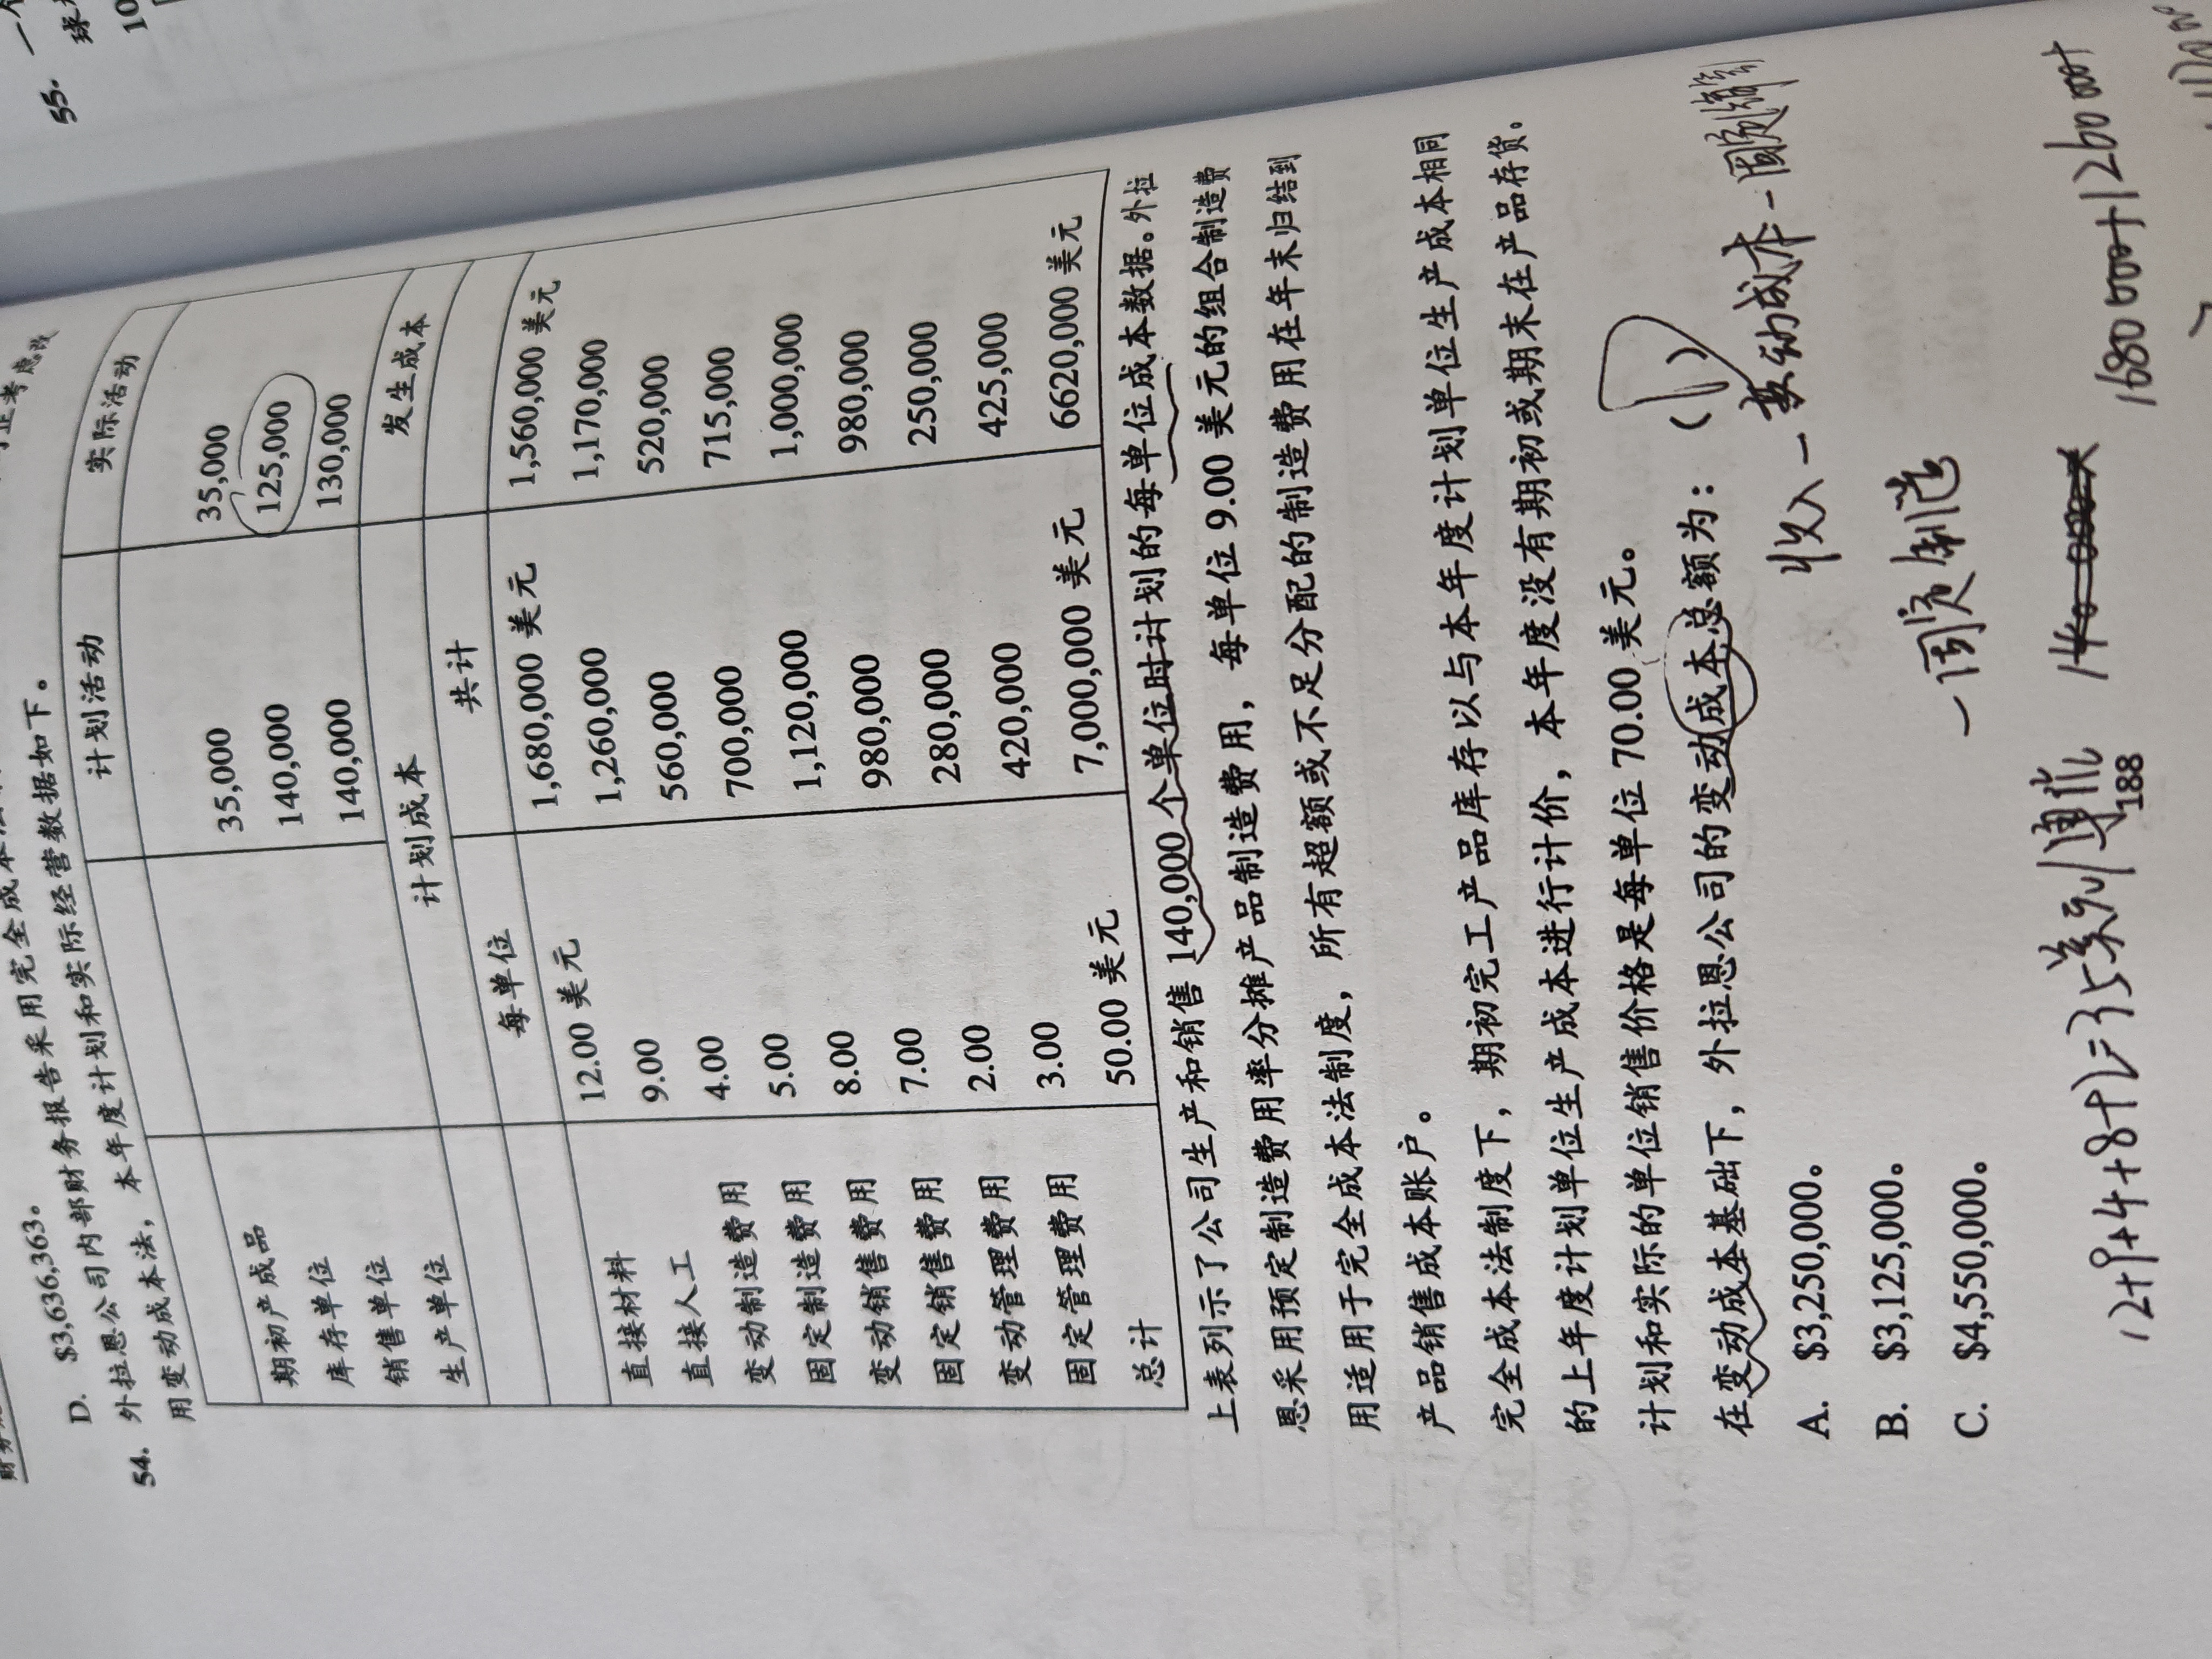 D. $3,636,363。
54. 外拉恩公司内部财务报告采用完全成本法
用变动成本法，本年度计划和实际经营数据如下。
计划活动 实际活动
期初产成品
库存单位 35,000 35,000
销售单位 140,000 125,000
生产单位 140,000 130,000
计划成本 发生成本
每单位 共计
直接材料 12.00 美元 1,680,000 美元 1,560,000 美元
直接人工 9.00 1,260,000 1,170,000
变动制造费用 4.00 560,000 520,000
固定制造费用 5.00 700,000 715,000
变动销售费用 8.00 1,120,000 1,000,000
固定销售费用 7.00 980,000 980,000
变动管理费用 2.00 280,000 250,000
固定管理费用 3.00 420,000 425,000
总计 50.00 美元 7,000,000 美元 6620,000 美元
上表列示了公司生产和销售 140,000 个单位时计划的每单位成本数据。外拉
恩采用预定制造费用率分摊产品制造费用，每单位 9.00 美元的组合制造费
用适用于完全成本法制度，所有超额或不足分配的制造费用在年末归结到
产品销售成本账户。
完全成本法制度下，期初完工产品库存以与本年度计划单位生产成本相同
的上年度计划单位生产成本进行计价，本年度没有期初或期末在产品存货。
计划和实际的单位销售价格是每单位 70.00 美元。
在变动成本基础下，外拉恩公司的变动成本总额为：
收入-变动成本-固定销
A. $3,250,000。
-固定制造
B. $3,125,000。
C. $4,550,000。
12+9+4+8+2=35 1680000+1260000+
188
55. 一个
球
10